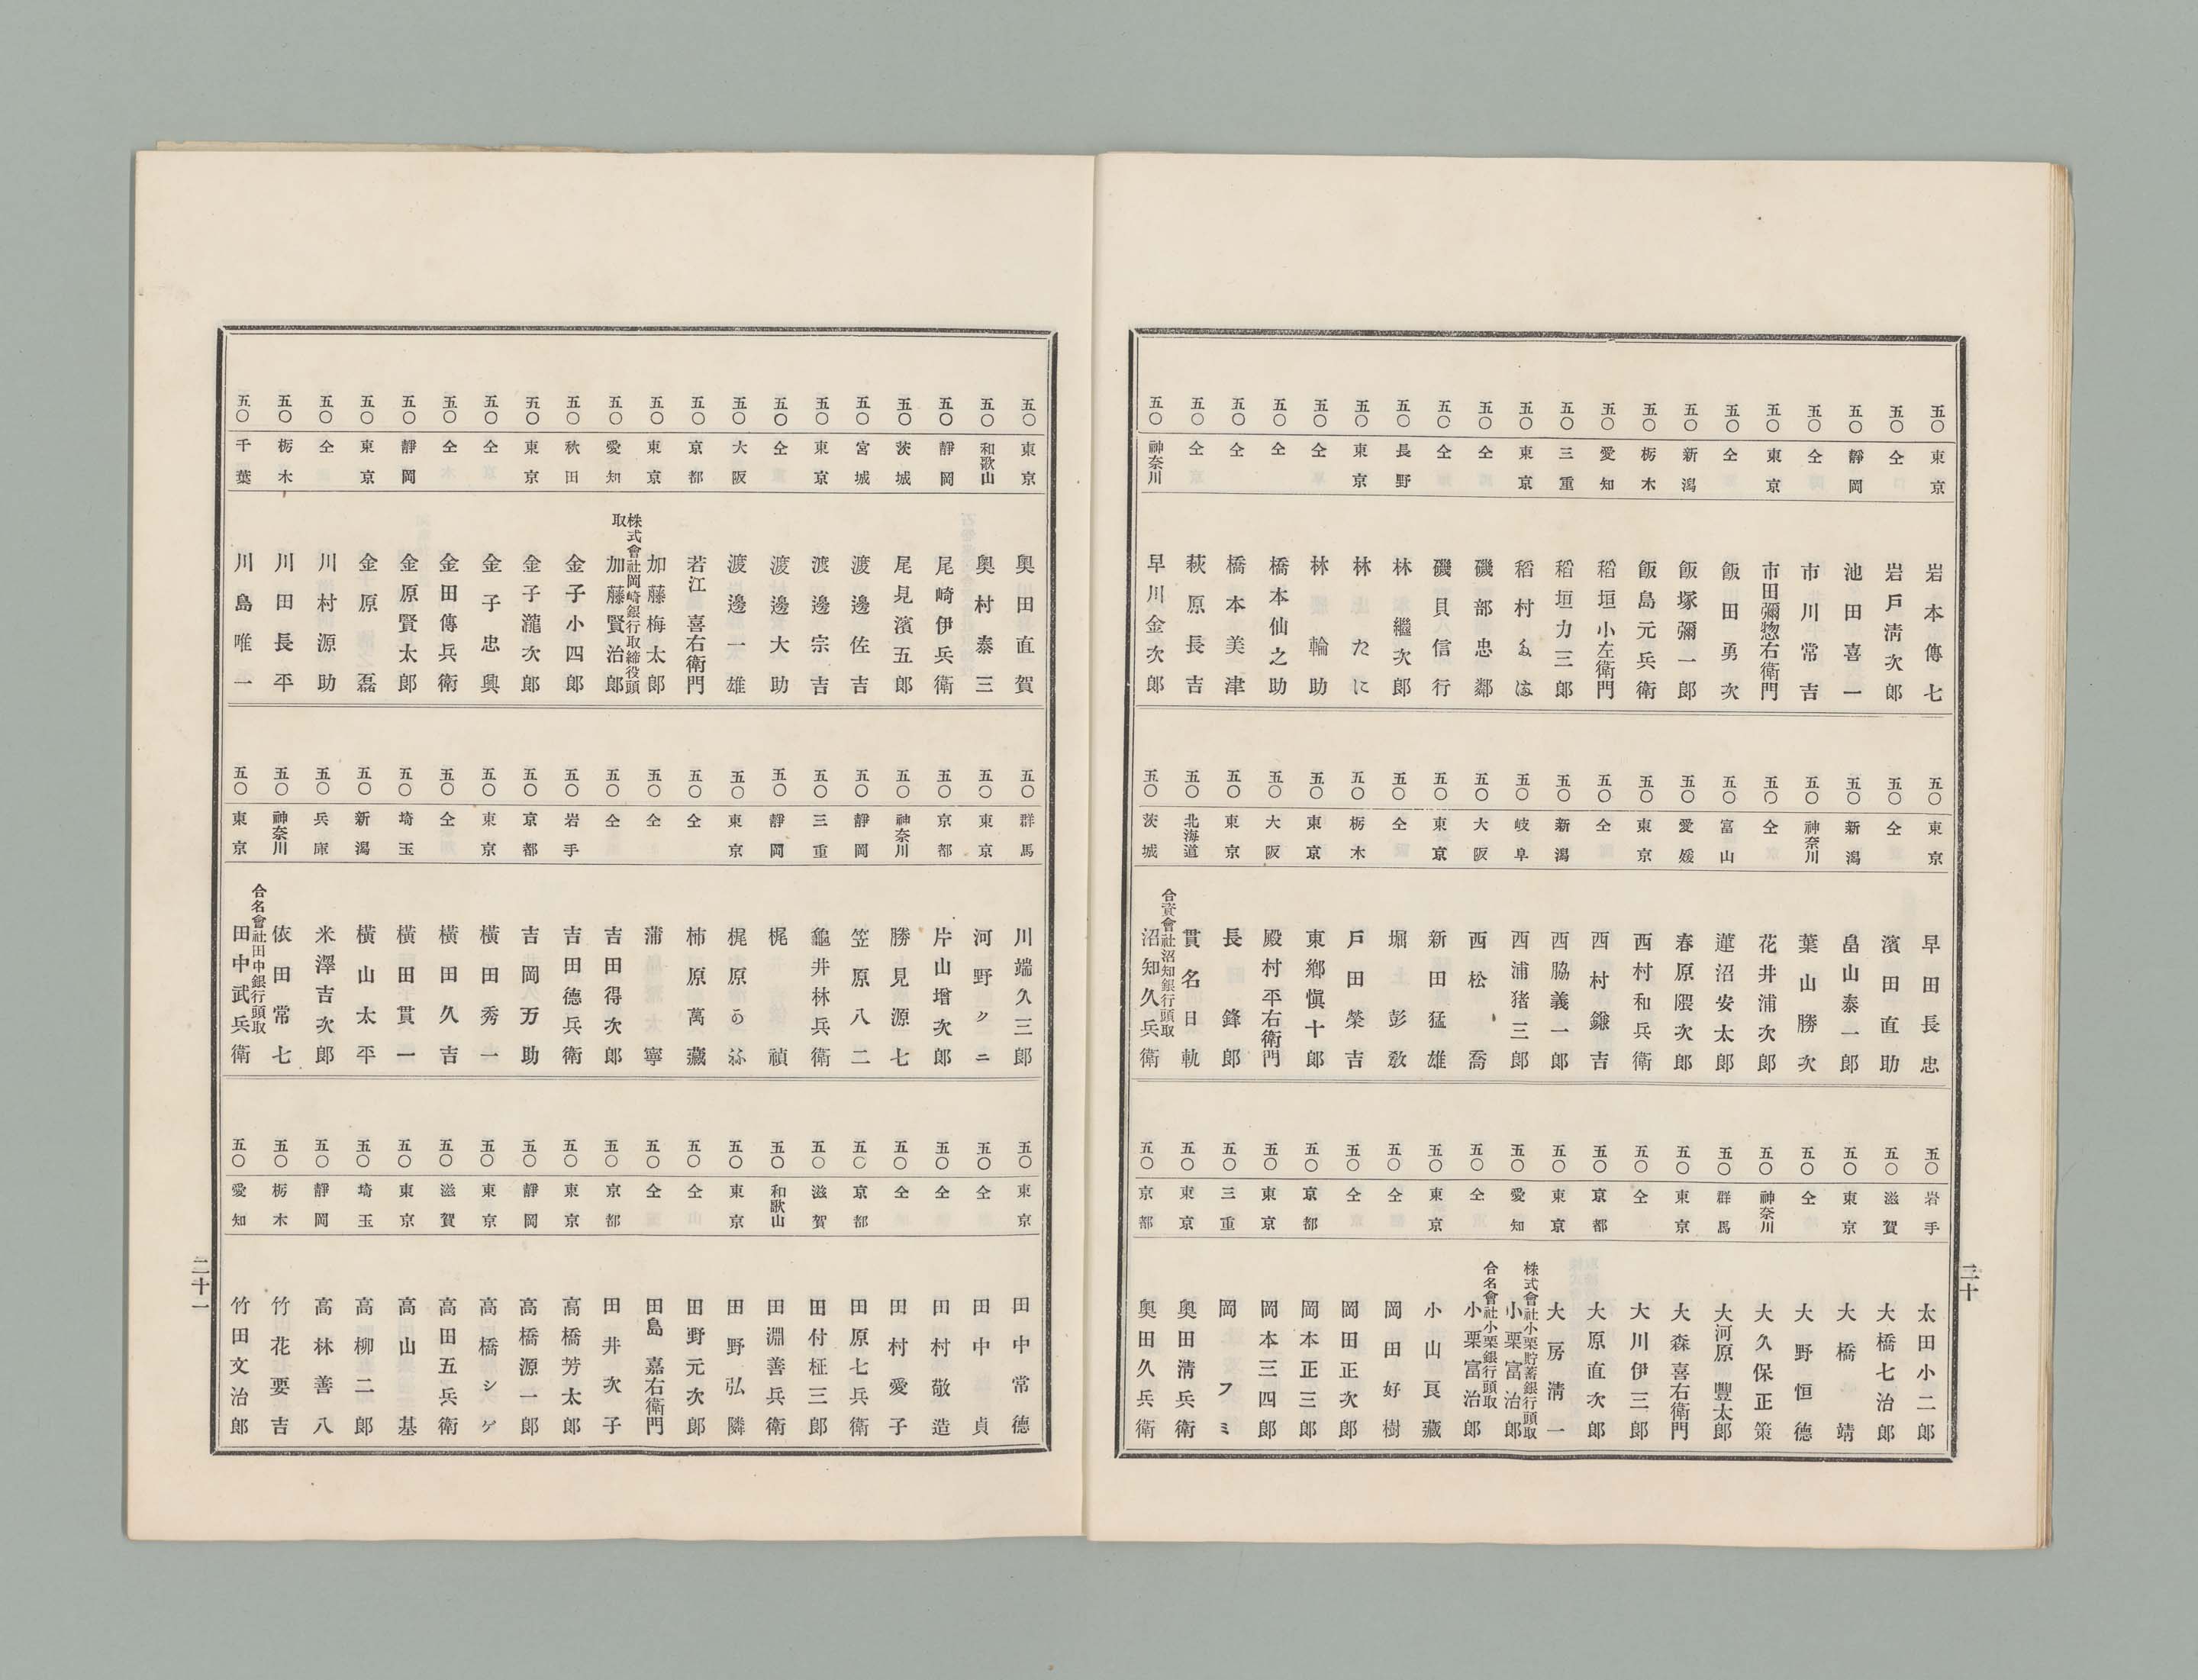 五〇 東京 岩本傳七
五〇 仝 岩戸淸次郎
五〇 靜岡 池田喜一
五〇 仝 市川常吉
五〇 東京 市田彌惣右衛門
五〇 仝 飯田勇次
五〇 新潟 飯塚彌一郎
五〇 栃木 飯島元兵衛
五〇 愛知 稻垣小左衛門
五〇 三重 稻垣力三郎
五〇 東京 稻村
五〇 仝 磯部忠鄰
五〇 仝 磯貝信行
五〇 長野 林繼次郎
五〇 東京 林たに
五〇 仝 林輪助
五〇 仝 橋本仙之助
五〇 仝 橋本美津
五〇 仝 萩原長吉
五〇 神奈川 早川金次郎
五〇 東京 早田長忠
五〇 仝 濱田直助
五〇 新潟 畠山泰一郎
五〇 神奈川 葉山勝次
五〇 仝 花井浦次郎
五〇 富山 蓮沼安太郎
五〇 愛媛 春原隈次郎
五〇 東京 西村和兵衛
五〇 仝 西村鎌吉
五〇 新潟 西脇義一郎
五〇 岐阜 西浦猪三郎
五〇 大阪 西松喬
五〇 東京 新田猛雄
五〇 仝 堀上彭敎
五〇 栃木 戸田榮吉
五〇 東京 東鄉愼十郎
五〇 大阪 殿村平右衛門
五〇 東京 長鋒郎
五〇 北海道 貫名日軌
五〇 茨城 合資會社沼知銀行頭取 沼知久兵衛
五〇 岩手 太田小二郎
五〇 滋賀 大橋七治郎
五〇 東京 大橋靖
五〇 仝 大野恒德
五〇 神奈川 大久保正策
五〇 群馬 大河原豐太郎
五〇 東京 大森喜右衛門
五〇 仝 大川伊三郎
五〇 京都 大原直次郎
五〇 東京 大房淸一
五〇 愛知 株式會社小栗貯蓄銀行頭取 小栗富治郎
五〇 仝 合名會社小栗銀行頭取 小栗富治郎
五〇 東京 小山良藏
五〇 仝 岡田好樹
五〇 仝 岡田正次郎
五〇 京都 岡本正三郎
五〇 東京 岡本三四郎
五〇 三重 岡フミ
五〇 東京 奧田淸兵衛
五〇 京都 奧田久兵衛
二十
五〇 東京 奧田直賀
五〇 和歌山 奧村泰三
五〇 靜岡 尾崎伊兵衛
五〇 茨城 尾見濱五郎
五〇 宮城 渡邊佐吉
五〇 東京 渡邊宗吉
五〇 仝 渡邊大助
五〇 大阪 渡邊一雄
五〇 京都 若江喜右衛門
五〇 東京 加藤梅太郎
五〇 愛知 株式會社岡崎銀行取締役頭取 加藤賢治郎
五〇 秋田 金子小四郎
五〇 東京 金子瀧次郎
五〇 仝 金子忠興
五〇 仝 金田傳兵衛
五〇 靜岡 金原賢太郎
五〇 東京 金原磊
五〇 仝 川村源助
五〇 栃木 川田長平
五〇 千葉 川島唯一
五〇 群馬 川端久三郎
五〇 東京 河野クニ
五〇 京都 片山增次郎
五〇 神奈川 勝見源七
五〇 靜岡 笠原八二
五〇 三重 龜井林兵衛
五〇 靜岡 梶禎
五〇 東京 梶原
五〇 仝 柿原萬藏
五〇 仝 蒲寧
五〇 仝 吉田得次郎
五〇 岩手 吉田德兵衛
五〇 京都 吉岡万助
五〇 東京 橫田秀一
五〇 仝 橫田久吉
五〇 埼玉 橫田貫一
五〇 新潟 橫山太平
五〇 兵庫 米澤吉次郎
五〇 神奈川 依田常七
五〇 東京 合名會社田中銀行頭取 田中武兵衛
五〇 東京 田中常德
五〇 仝 田中貞
五〇 仝 田村敬造
五〇 仝 田村愛子
五〇 京都 田原七兵衛
五〇 滋賀 田付柾三郎
五〇 和歌山 田淵善兵衛
五〇 東京 田野弘隣
五〇 仝 田野元次郎
五〇 仝 田島嘉右衛門
五〇 京都 田井次子
五〇 東京 高橋芳太郎
五〇 靜岡 高橋源一郎
五〇 東京 高橋シゲ
五〇 滋賀 高田五兵衛
五〇 東京 高山基
五〇 埼玉 高柳二郎
五〇 靜岡 高林善八
五〇 栃木 竹花要吉
五〇 愛知 竹田文治郎
二十一